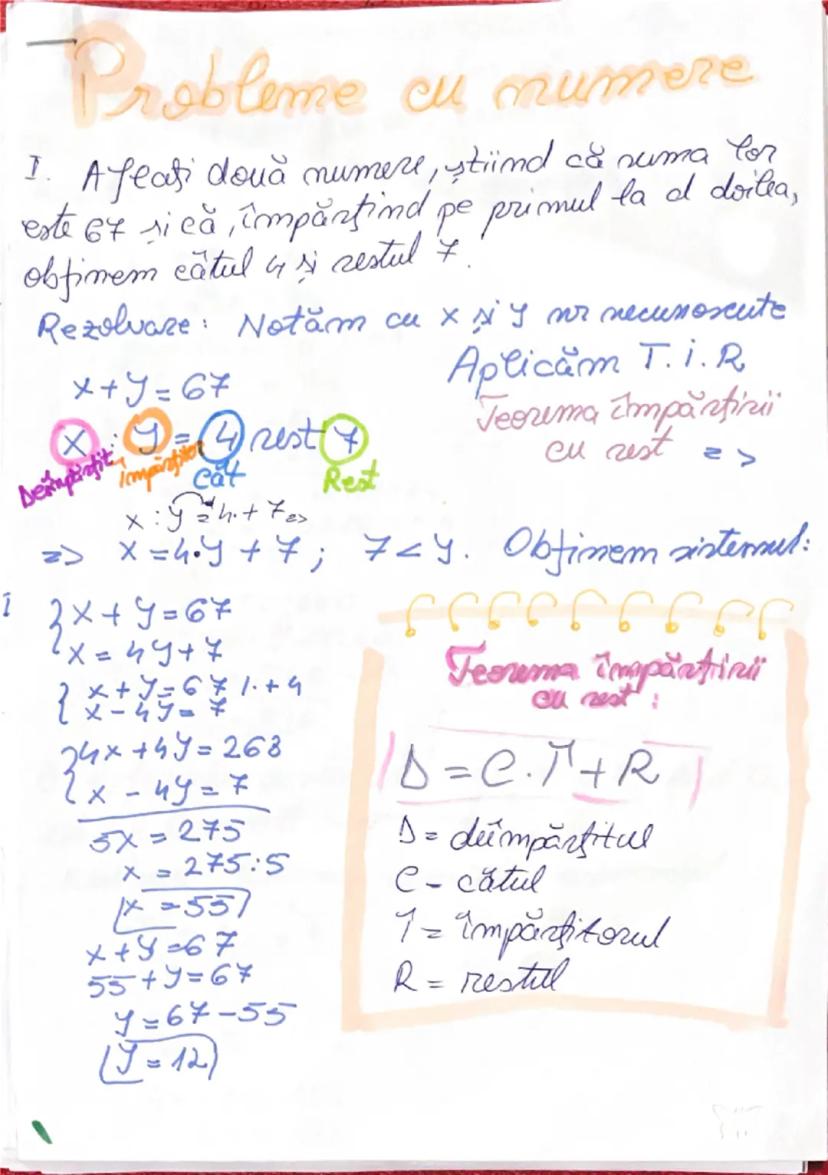 Probleme cu numere
I. Aflați două numere, știind că suma lor
este 67 și că, împărțind pe primul la al doilea,
obținem câtul 4 și restul 7.
Rezolvare: Notăm cu x și y nr necunoscute
Aplicăm T.Î.R
Teorema împărțirii
cu rest =>
x+y=67
x : y = 4 rest 7
Deîmpărțit împărțitor Cât Rest
x : y = 4 · + 7 =>
=> x = 4·y + 7 ; 7 < y. Obținem sistemul:
I { x + y = 67
{ x = 4y + 7
{ x + y = 67 | · + 4
{ x - 4y = 7
{ 4x + 4y = 268
{ x - 4y = 7
5x = 275
x = 275:5
x = 55
x+y=67
55+y=67
y=67-55
y=12
Teorema împărțirii
cu rest :
D = C · Î + R
D = deîmpărțitul
C - câtul
Î = împărțitorul
R = restul